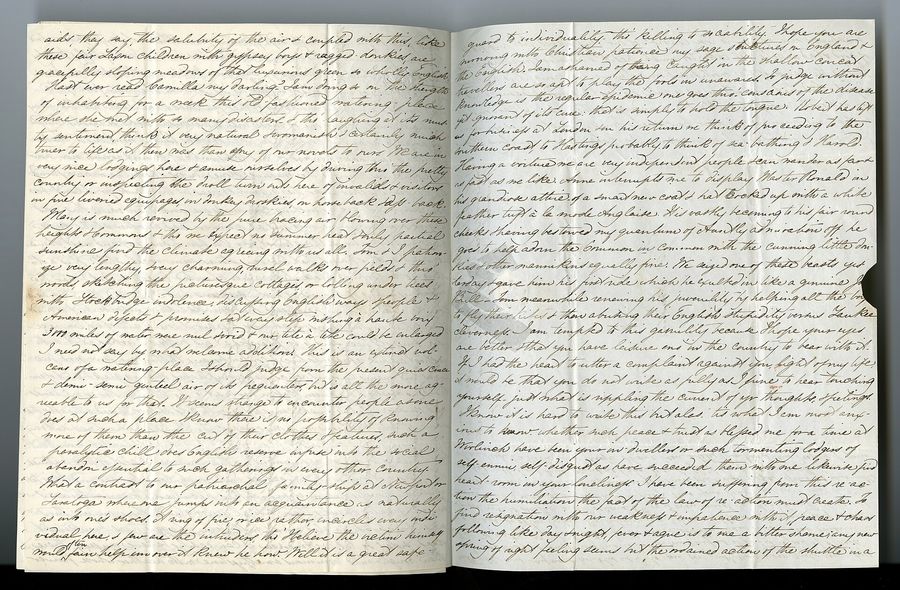 aids, they say, the salubrity of the air & coupled with this, like
these fair Saxon children with gypsey boys & ragged donkies, are
gracefully sloping meadows of that luxurious green so wholly English
Hast ever read Camilla my darling. I am doing so on the strength
of inhabiting for a week this old fashioned watering place
where she met with so many disasters & tho' laughing at its
by sentiment think it very natural & womanish & certainly much
truer to life as it then was than any of our novels to ours. We are in
very nice lodgings here & amuse ourselves by driving thro the pretty
country or inspecting the droll turn outs here of invalids & visitors
in five livened equipages in donkey on horseback
Mary is much revived by the pure bracing air blowing over these
heights & commons & tho we expect no summer heat & only partial
sunshine find the climate agreeing with us all. Tom & I
very lengthy & very charming rural walks over fields & thro
woods sketching the picturesque cottages, or lolling under trees
with Stockbridge indolence discussing English ways & people &
American defects & promises
3000 miles of water were well & our tête à tête could be enlarged
I need not say by what welcome additions. This is an
of a watering-place I should judge from the present quiet
& demi-semi genteel air of its frequenters but is all the more ag-
reeable to us for that. It seems strange to encounter people as one
does at such a place & know that there is no probability of knowing
more of them than the cut of their clothes & features, such a
paralytic chill does English reserve infuse into the social
abandon essential to such gatherings in every other country.
What a contrast to our patriarchal family ships at
Saratoga where one jumps into an acquaintance as naturally
as into ones shoes. A ring of fire, or ice rather encircles every indi-
vidual here, & few are the intruders tho I believe the victim himself
would fain help him over it knew he how. Still it is a great safe-
guard to individuality this killing to sociability. I hope you are
with Christian patience my sage strictures on England &
the English. I am ashamed of being caught in the shallow conceit
travellers are so apt to play the fools in unawares. To judge without
knowledge is the regular epidemic one goes thro, conscious of the disease
yet ignorant of its cure: that is simply to hold the tongue.
us for business at London & on his return we think of proceeding to the
Southern coast to Hastings probably to think of sea bathing & Harold
Having a voiture we are very independent people & can wander as far &
as fast as we like. Anne interrupts me to display Master Ronald in
his grandiose attire of a smart new coat & hat cocked up with a white
feather tuft à la mode Anglaise. His vastly becoming to his fair round
cheeks & having bestowed my quantum of Auntly admiration off he
goes to help adorn the common in common with the cunning little don-
kies & other mannikins equally fine. We seized one of these beasts yes-
terday & gave him his first ride which he
meanwhile renewing his juvenility by helping all the boys
to fly their kites & then abusing their English stupidity versus Yankee
cleverness. I am tempted to this garrulity because I hope your eyes
are better & that you have leisure in the country to bear with it.
If I had the heart to utter a complaint against you, light of my life
it would be that you do not write as fully as I pine to hear touching
yourself, just what is rippling the current of yr thoughts & feelings.
I know it is hard to write this but alas 'tis what I am most anx-
ious to know whether such peace & trust as blessed me for a time at
Woolwich have been your in-dwellers or such tormenting lodgers of
self-ennui self-disgust as have succeeded them with one likewise find
heart-room in your loneliness. I have been suffering from this re-ac-
tion the humiliation the fact of the law of re-action must create. To
find resignation with our weakness & impatience with it, peace & chaos
following like day & night, fever & ague is to me a bitter shame; any new
spring of right feeling seems but the ordained action of the shuttle in a